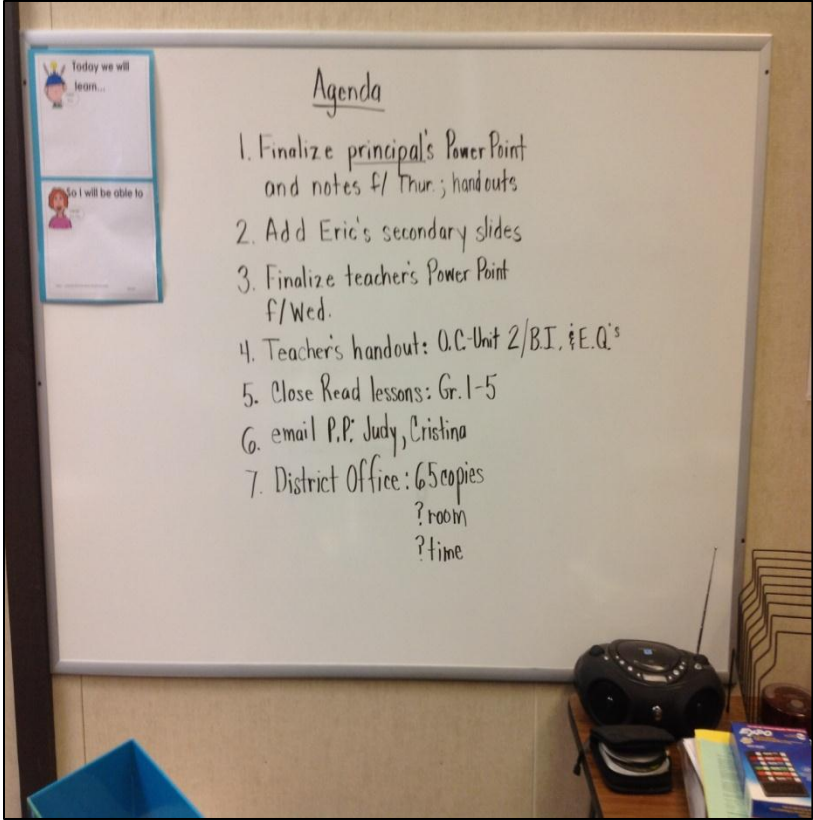 Today we will
learn...
So I will be able to
Agenda
1. Finalize principal's PowerPoint
and notes f/ Thur.; handouts
2. Add Eric's secondary slides
3. Finalize teacher's Power Point
f/Wed.
4. Teacher's handout: O.C-Unit 2/B.I. & E.Q's
5. Close Read lessons: Gr. 1-5
6. email P.P: Judy, Cristina
7. District Office: 65 copies
? room
? time
EXPO